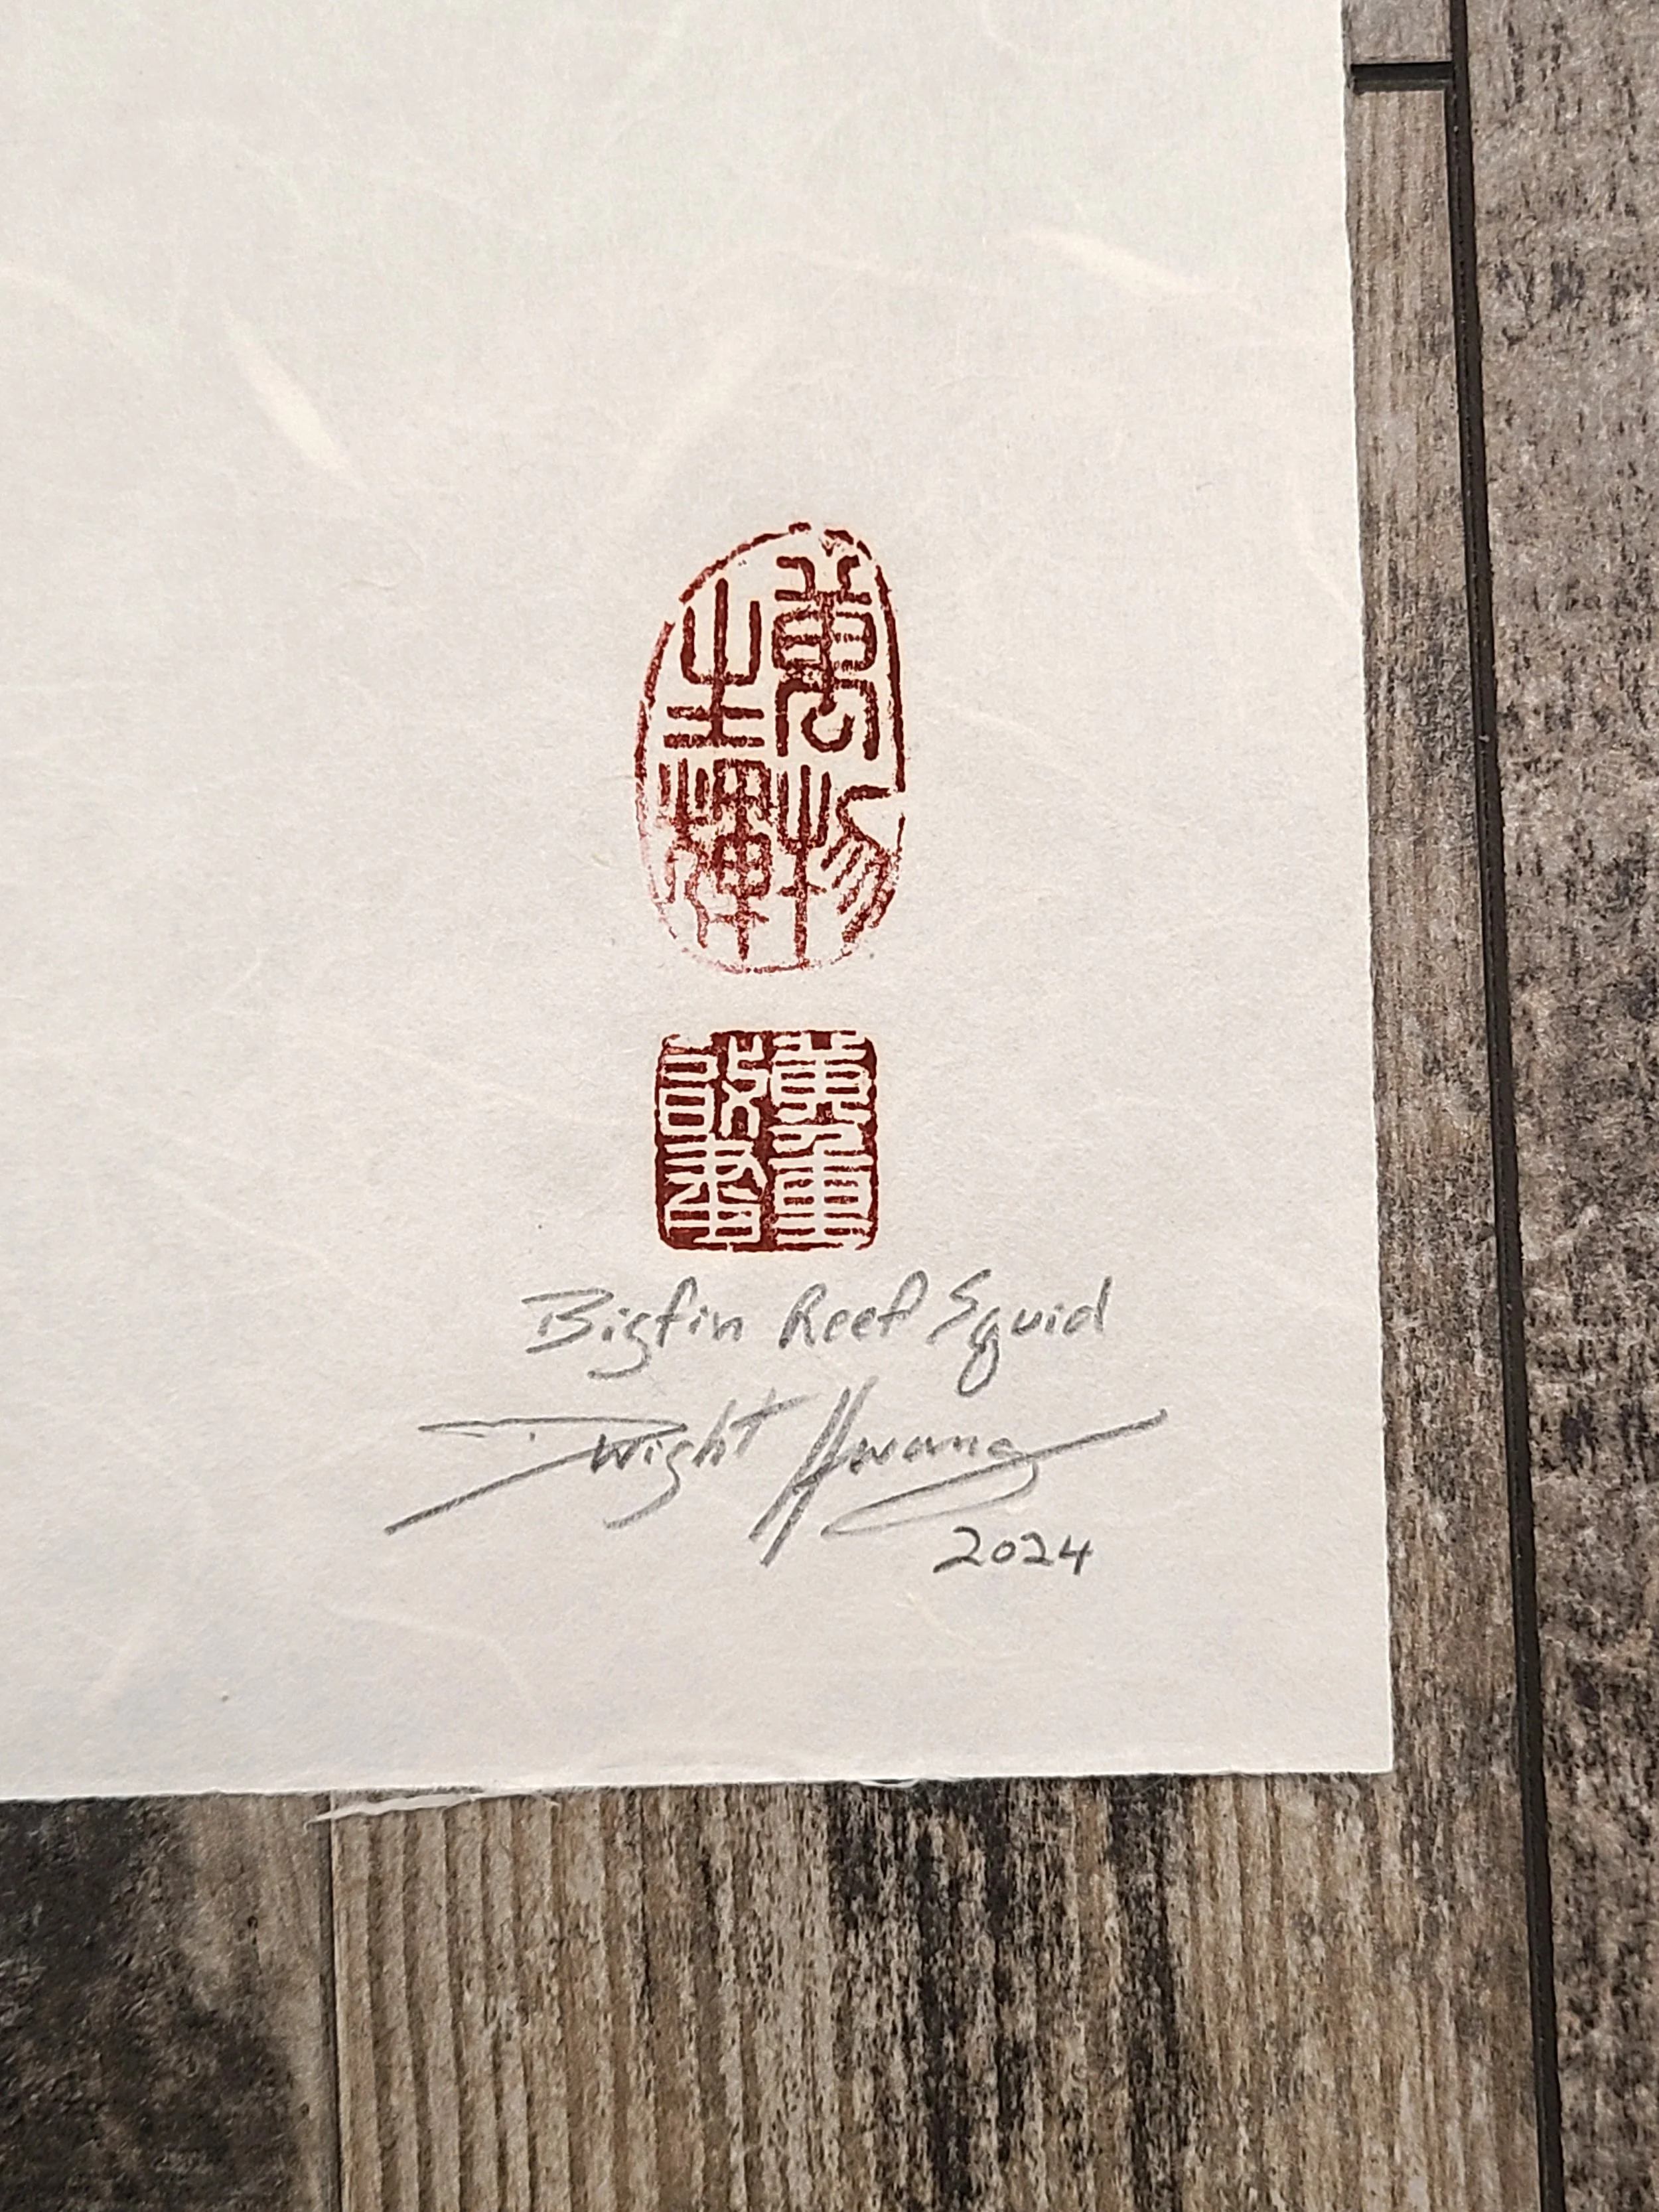 萬物
生輝
Bigfin Reef Squid
Dwight Hwang
2024